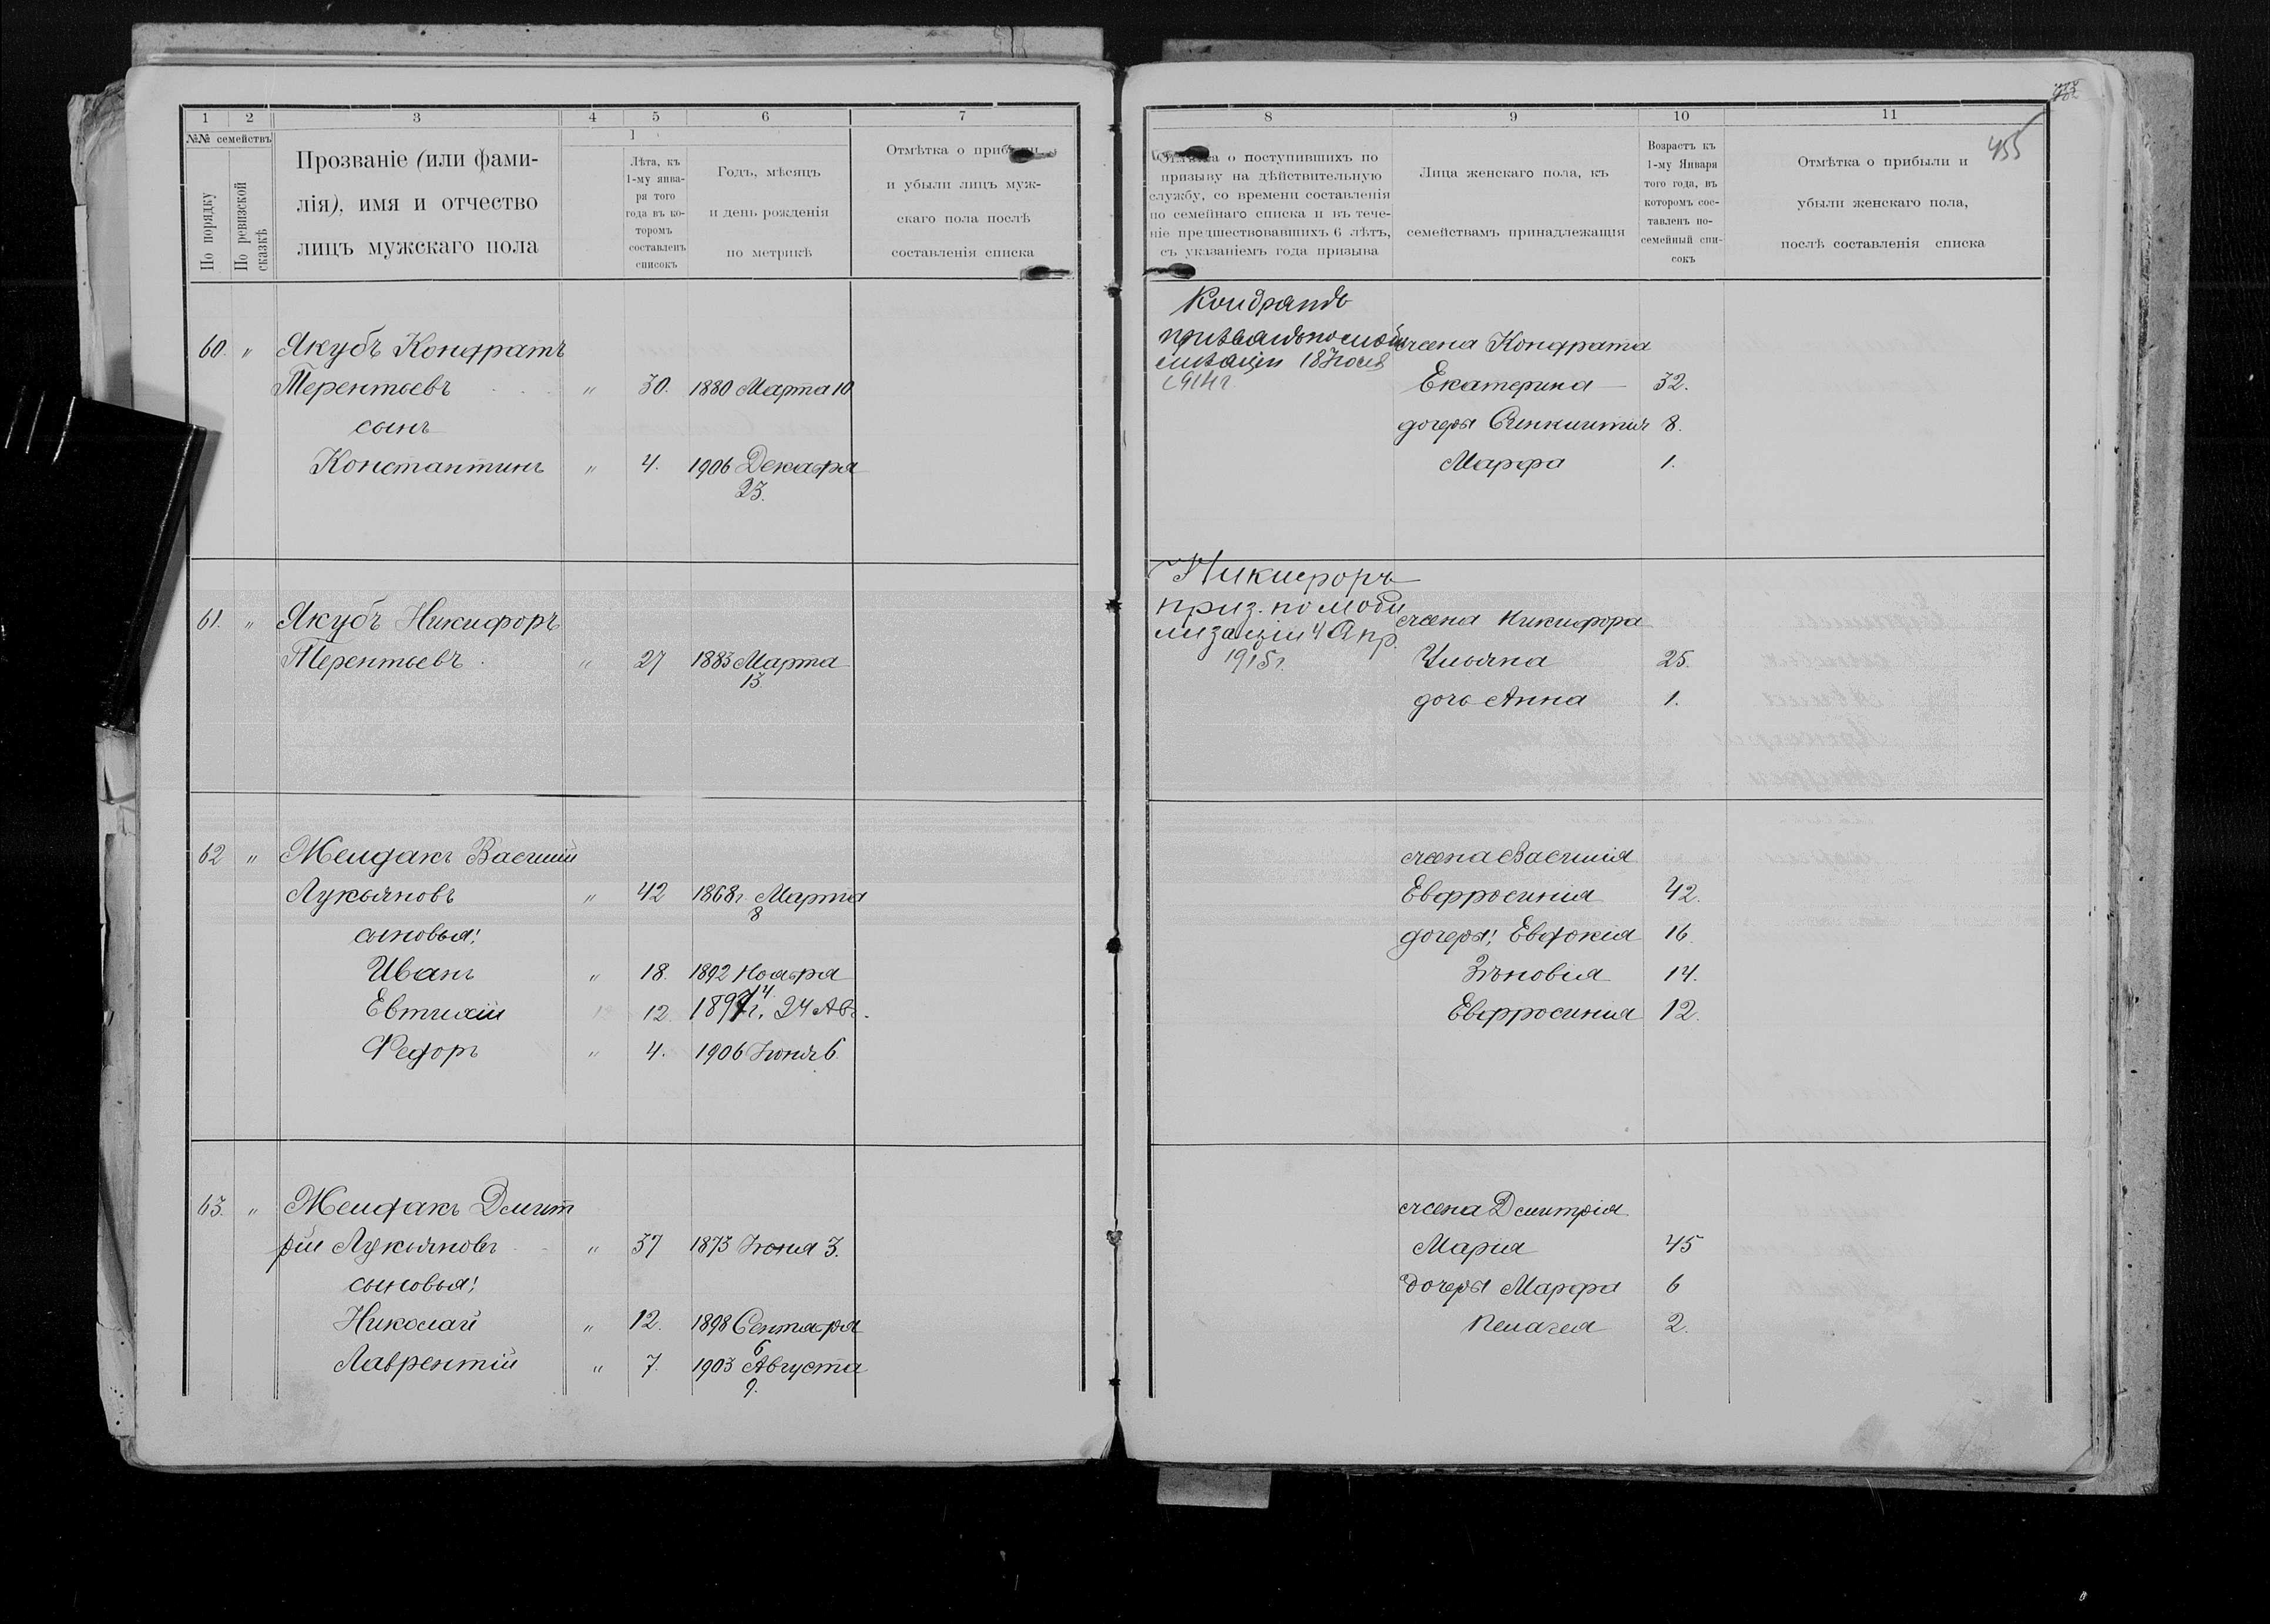 1 2 3 4 5 6 7
№№ семействъ
По порядку
По ревизской сказкѣ
Прозваніе (или фами-
лія), имя и отчество
лицъ мужскаго пола
Лѣта, къ
1-му янва-
ря того
года въ ко-
торомъ
составленъ
списокъ
Годъ, мѣсяцъ
и день рожденія
по метрикѣ
Отмѣтка о прибыли
и убыли лицъ муж-
скаго пола послѣ
составленія списка
60. " Якубъ Кондратъ
Терентьевъ " 30. 1880 Марта 10
сынъ
Константинъ " 4. 1906 Декабря
23.
61. " Якубъ Никифоръ
Терентьевъ " 27 1883 Марта
13
62 " Желдакъ Василій
Лукьяновъ " 42 1868г. Марта
8
сыновья:
Иванъ " 18. 1892 Ноября
14
Евтихій 12 1897г. 24 Авг.
Федоръ " 4. 1906 Іюня 6
63. " Желдакъ Дмит
рій Лукьяновъ " 37 1873 Іюня 3.
сыновья:
Николай " 12. 1898 Сентября
6
Лаврентій " 7. 1903 Августа
9.
8 9 10 11
455
Отмѣтка о поступившихъ по
призыву на дѣйствительную
службу, со времени составленія
по семейнаго списка и въ тече-
ніе предшествовавшихъ 6 лѣтъ,
съ указаніемъ года призыва
Лица женскаго пола, къ
семействамъ принадлежащія
Возрастъ къ
1-му Января
того года, въ
которомъ сос-
тавленъ по-
семейный спи-
сокъ
Отмѣтка о прибыли и
убыли женскаго пола,
послѣ составленія списка
Кондратъ
призванъ по моби
лизаціи 18 Іюля
1914г
жена Кондрата
Екатерина 32.
дочеры Синклитія 8.
Марфа 1.
Никифоръ
приз. по моби
лизаціи 4 Апр.
1915г.
жена Никифора
Ульяна 25.
дочь Анна 1.
жена Василія
Евфросинія 42.
дочеры: Евдокія 16.
Зѣновія 14.
Евфросинія 12.
жена Дмитрія
Мария 45
дочеры Марфа 6
Пелагея 2.